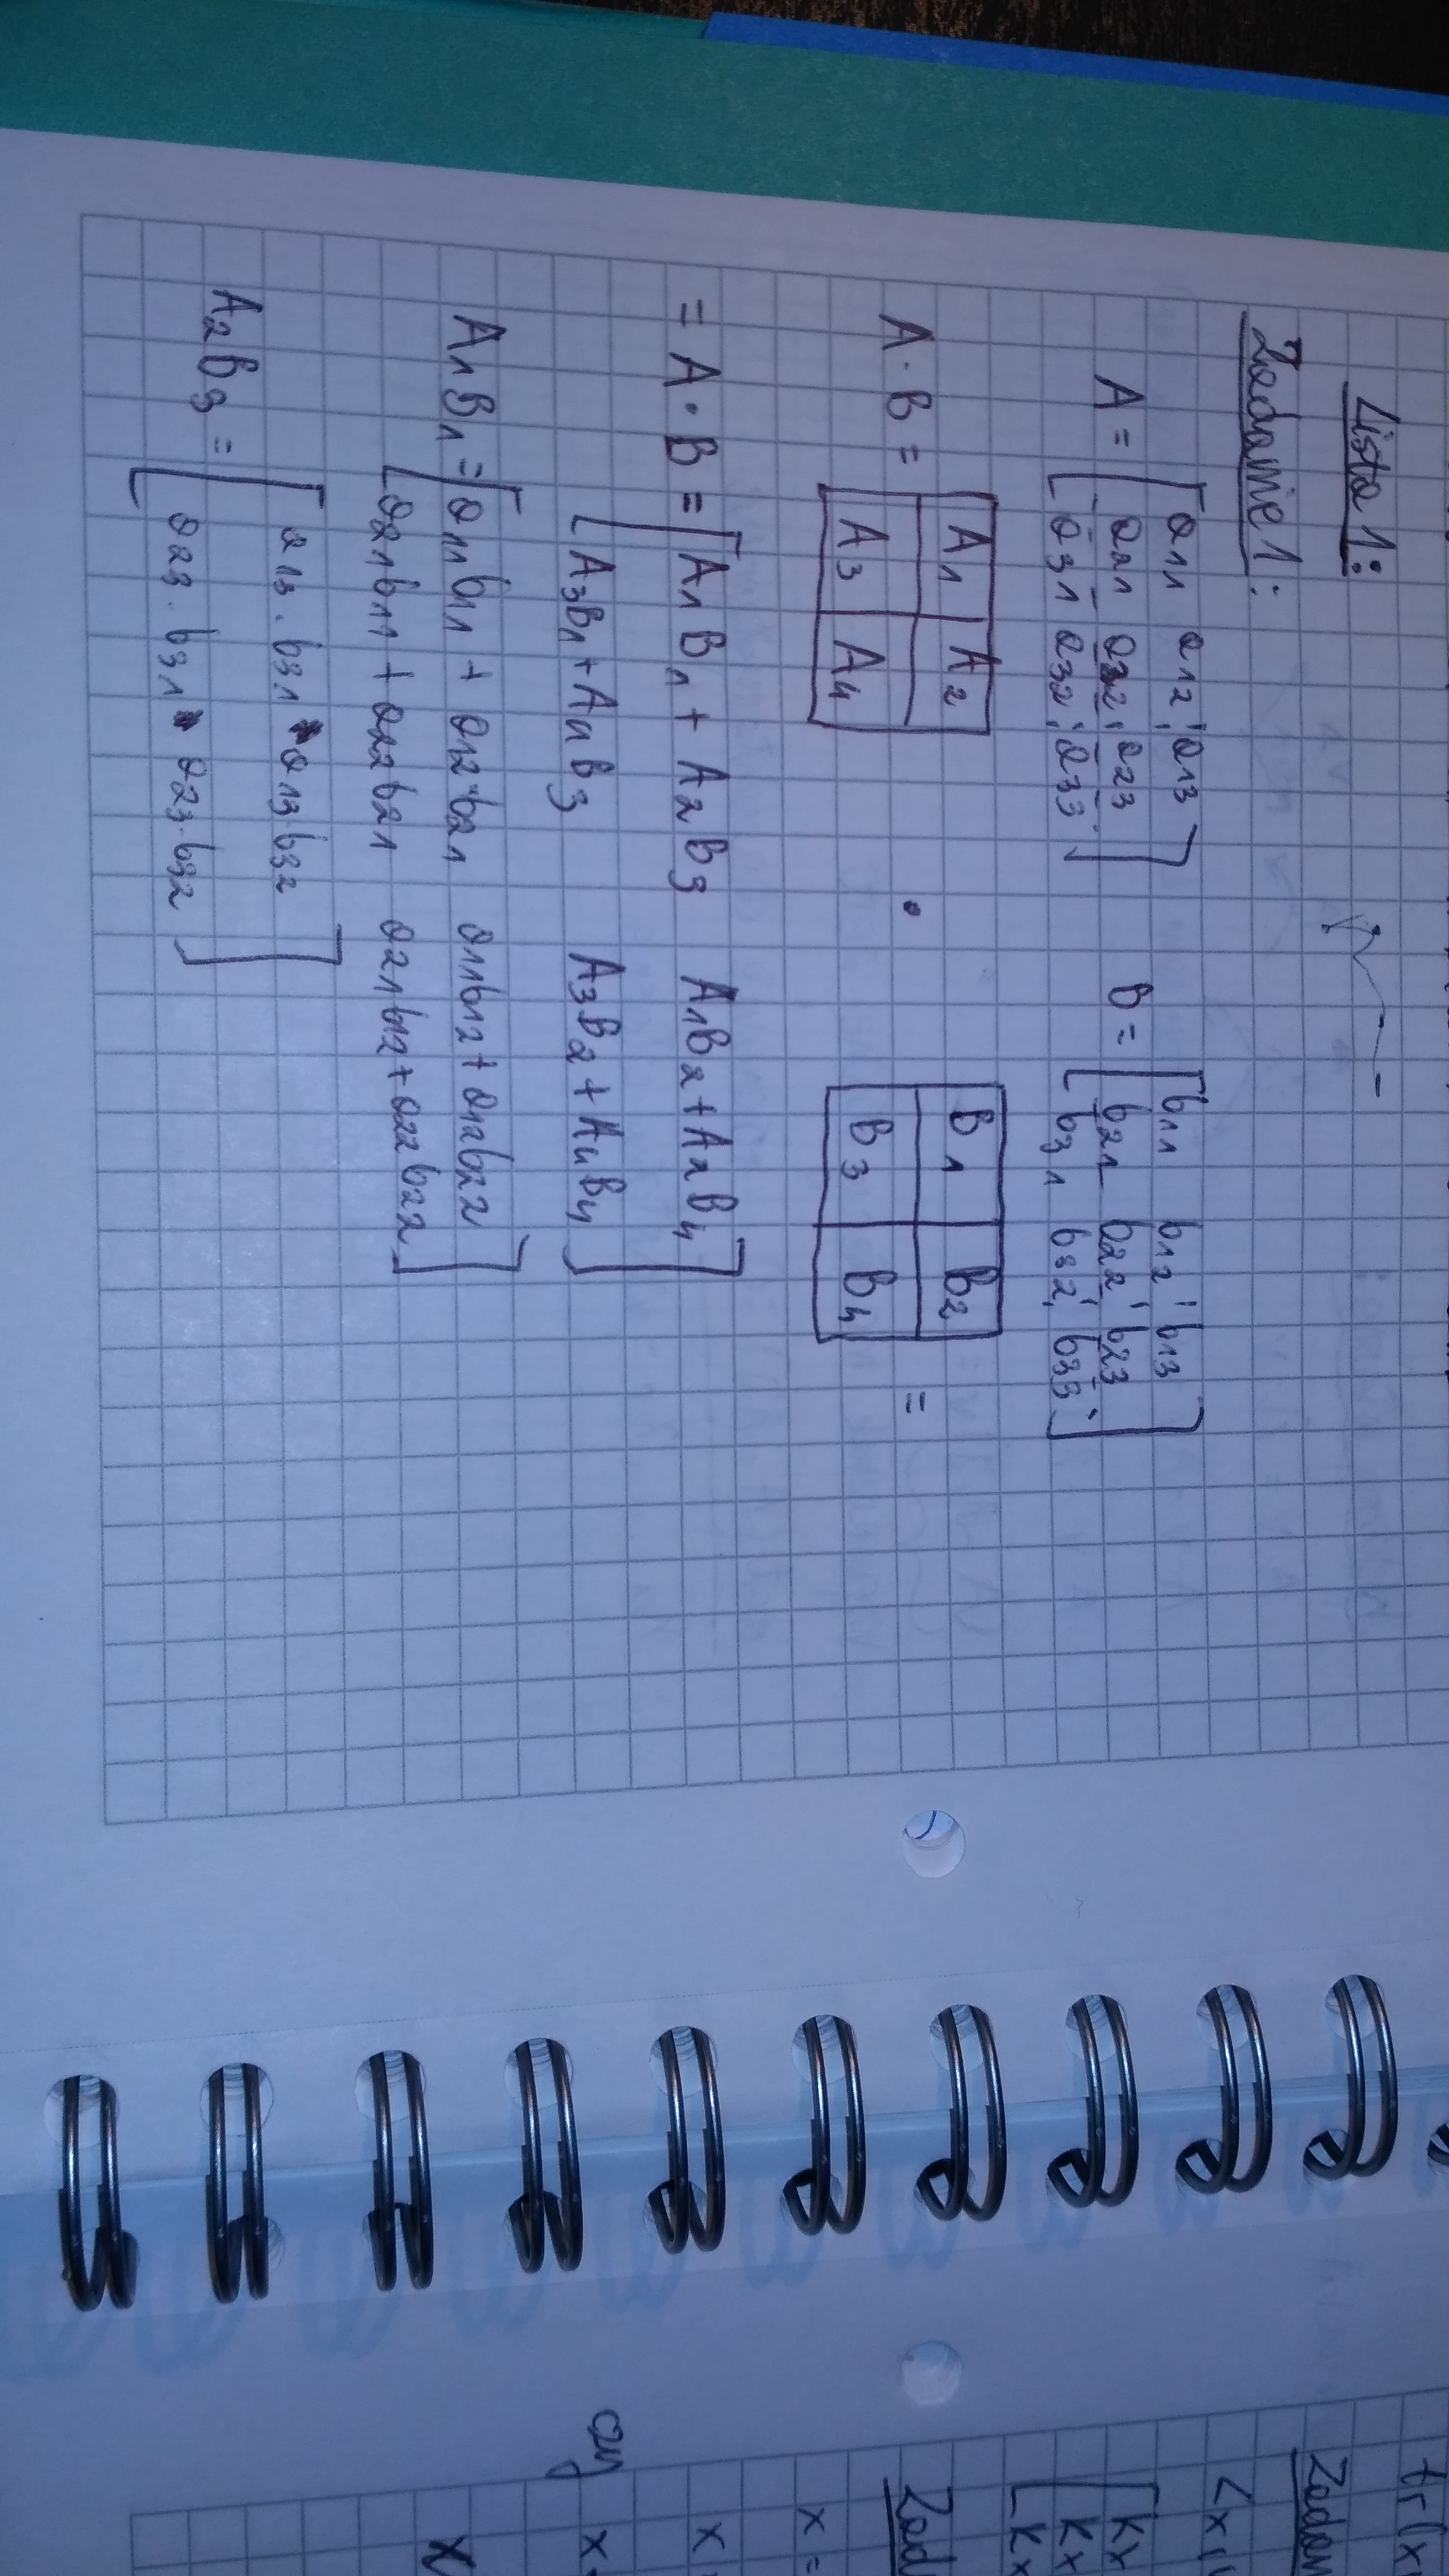 Lista 1:
Zadanie 1:
A = [ a11 a12 ¦ a13      B = [ b11 b12 ¦ b13
a21 a22 ¦ a23      b21 b22 ¦ b23
a31 a32 ¦ a33 ]      b31 b32 ¦ b33 ]
A · B = A1 A2 · B1 B2 =
A3 A4      B3 B4
= A · B = [ A1B1 + A2B3      A1B2 + A2B4
A3B1 + A4B3      A3B2 + A4B4 ]
A1B1 = [ a11b11 + a12·b21      a11b12 + a12b22
a21b11 + a22b21      a21b12 + a22b22 ]
A2B3 = [ a13·b31 a13b32
a23·b31 a23·b32 ]
tr(x
Zadan
<x
[ kx
kx
kx
Zad
x =
x
czy x
x